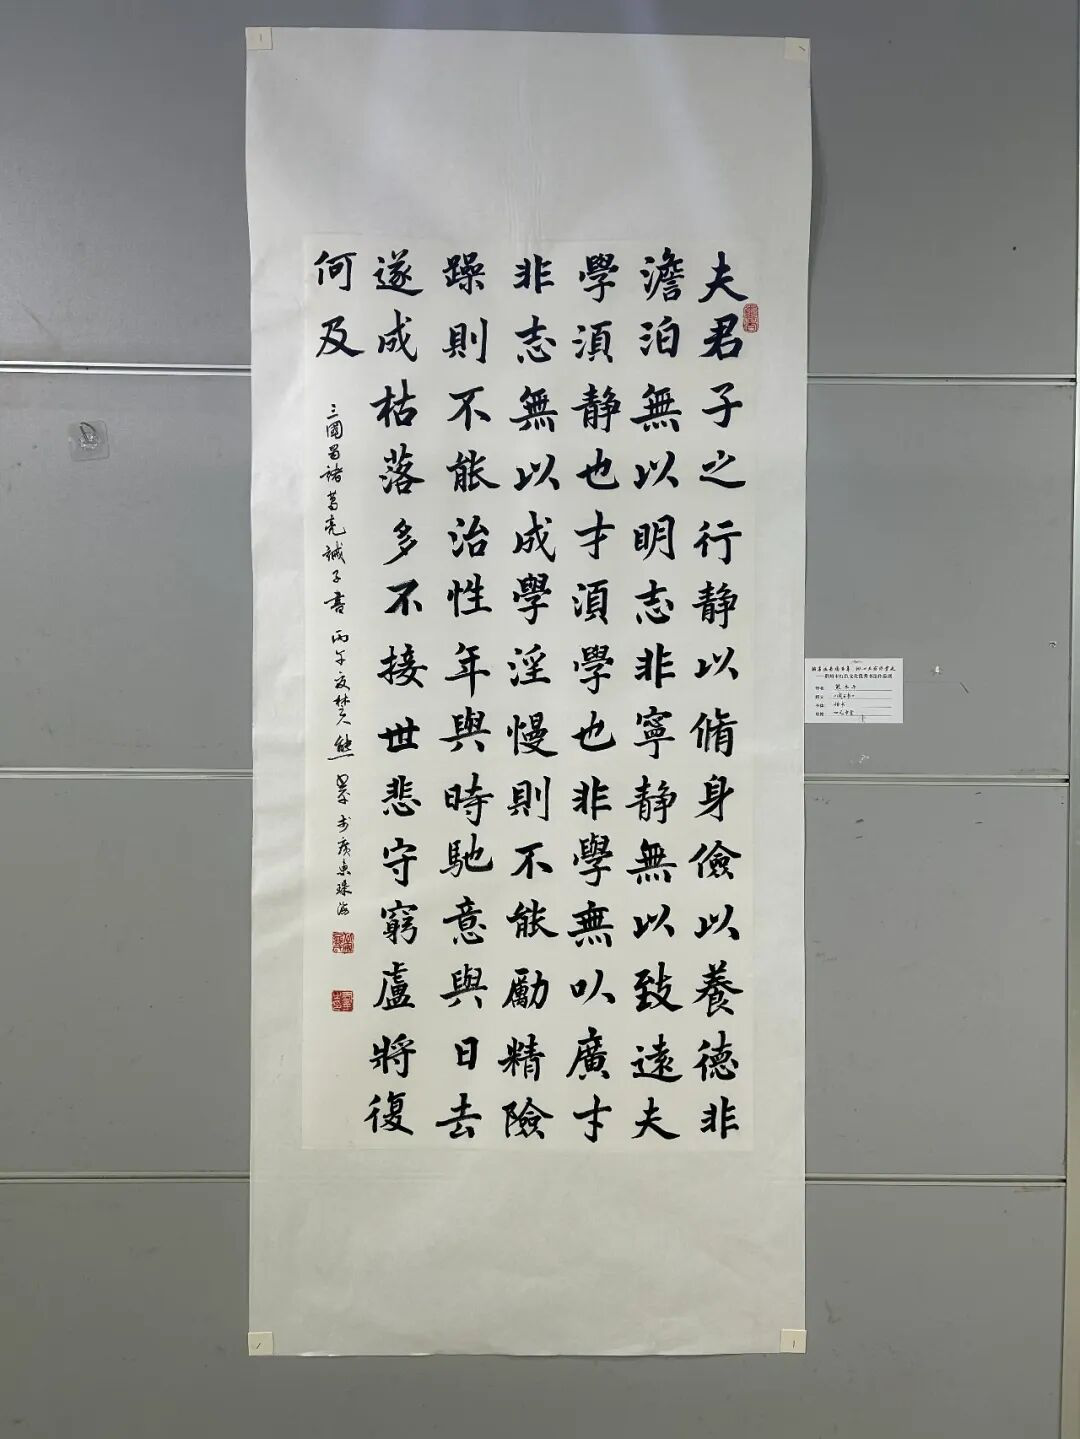 夫君子之行静以脩身儉以養德非
澹泊無以明志非寧静無以致遠夫
學須静也才須學也非學無以廣才
非志無以成學淫慢則不能勵精險
躁則不能治性年與時馳意與日去
遂成枯落多不接世悲守窮廬將復
何及
三國蜀諸葛亮誡子書 丙午夏楚人熊 書於廣東珠海